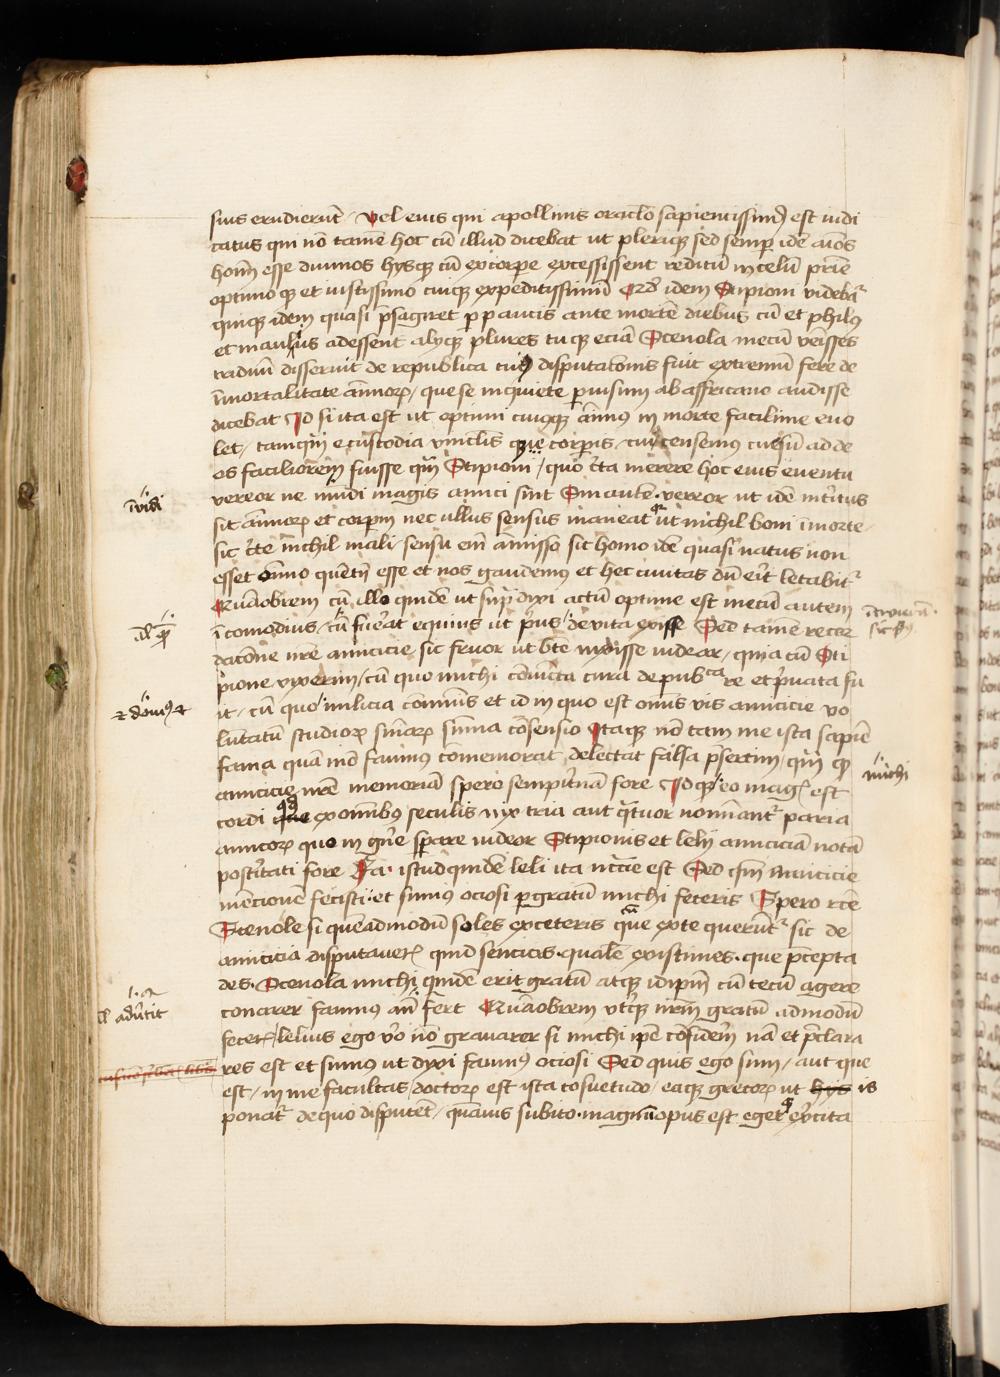 suis erudierūt / vel eius qui apollinis oraclo sapientissimꝰ est iudi
catus qui nō tamē hoc cū illud dicebat ut plerisqꝫ sed semꝑ idē aīōs
hoīm esse diuinos hysqꝫ cū ex corꝑe excessissent reditū in celū ꝓriē
optimo qꝫ et iustissimo cuiqꝫ expeditissimū Qd̄ idem Scipioni videbat᷑
quiqꝫ idem quasi p̄sagiret ꝑpaucis ante mortē diebus cū et philꝰ
et manlius adessent alyqꝫ plures tuqꝫ eciā Scenola mecū venisses
triduū disseruit de republica cuiꝰ disputacōnis fuit extremū fere de
īmortalitate aīmorꝝ / que se in quiete ꝑ uisum ab affricano audisse
dicebat Id si ita est ut optimi cuiqꝫ aīmus in morte facilime euo
let / tamqꝫ̄ e custodia vinclis qꝫ corꝑis / cui censemus cursū ad de
os faciliorem fuisse qꝫ̄ Scipioni / quo c̄ta merere hoc eius euentu
vereor ne inuidi magis amici sint Sin autē vereor ut idē int̄itus
sit aīmorꝝ et corꝑum nec ullus sensus maneat ut nichil boni ī morte
sic c̄te nichil mali / sensu em̄ amisso sit homo idē quasi natus non
esset om̄no quē tn̄ esse et nos gaudemus et hec ciuitas dū er̄it letabit᷑
Quāobrem cū illo quidē ut sup̄ dixi actū optime est mecū autem
īcomodius / cū fuerat equius ut p̄us de vita exisse Sed tamē recor
datōne nr̄e amicicie sic fruor ut bn̄ vixisse uidear / quia cū Sci
pione vixerim / cū quo michi cōiuncta cura de publica re et p̄uata fu
it / cū quo milicia comūis et id in quo est om̄is vis amicicie vo
luntatū studiorꝝ sn̄iarꝝ sūma cōsensio Itaqꝫ nō tam me ista sapiē
fama quā mō fannius cōmemorat delectat falsa p̄sertim / qꝫ̄ qꝫ
amicicie nr̄e memoriā spero sempit̄nā fore Idqꝫ eo magꝭ est
cordi qd ex omībus seculis vix tria aut q̄tuor nomīant᷑ paria
amicorꝝ quo in gn̄e sꝑare uideor Scipionis et lelij amiciciā notā
post̄itati fore Fa. istud quidē leli ita nc̄cē est Sed qm̄ amicicie
mēcionē fecisti et sumus ociosi ꝑgratū michi feceris Spero itē
Scenole si quēadmodū soles ex ceteris que ex te querūt᷑ sic de
amicicia disputauerꝭ quid sencias qualē existimes que p̄cepta
des. Scenola michi quidē erit gratū atqꝫ id ip̄m cū tecū agere
conarer fannius an̄ fert Quāobrem ut̄qꝫ nr̄m gratū admodū
fecerꝭ / lelius ego v̄o nō grauarer si michi ip̄e cōfiderē nā et p̄clara
res est et sumus ut dixi fanniꝰ ociosi Sed quis ego sum / aut que
est / in me facultas / doctorꝝ est ista cōsuetudo / eaqꝫ grecorꝝ ut hys is
ponat᷑ de quo disputēt / quāuis subito magnū opus est eget qꝫ ex̄cita
īvidi
ul qꝫ
michi
ul adūtit